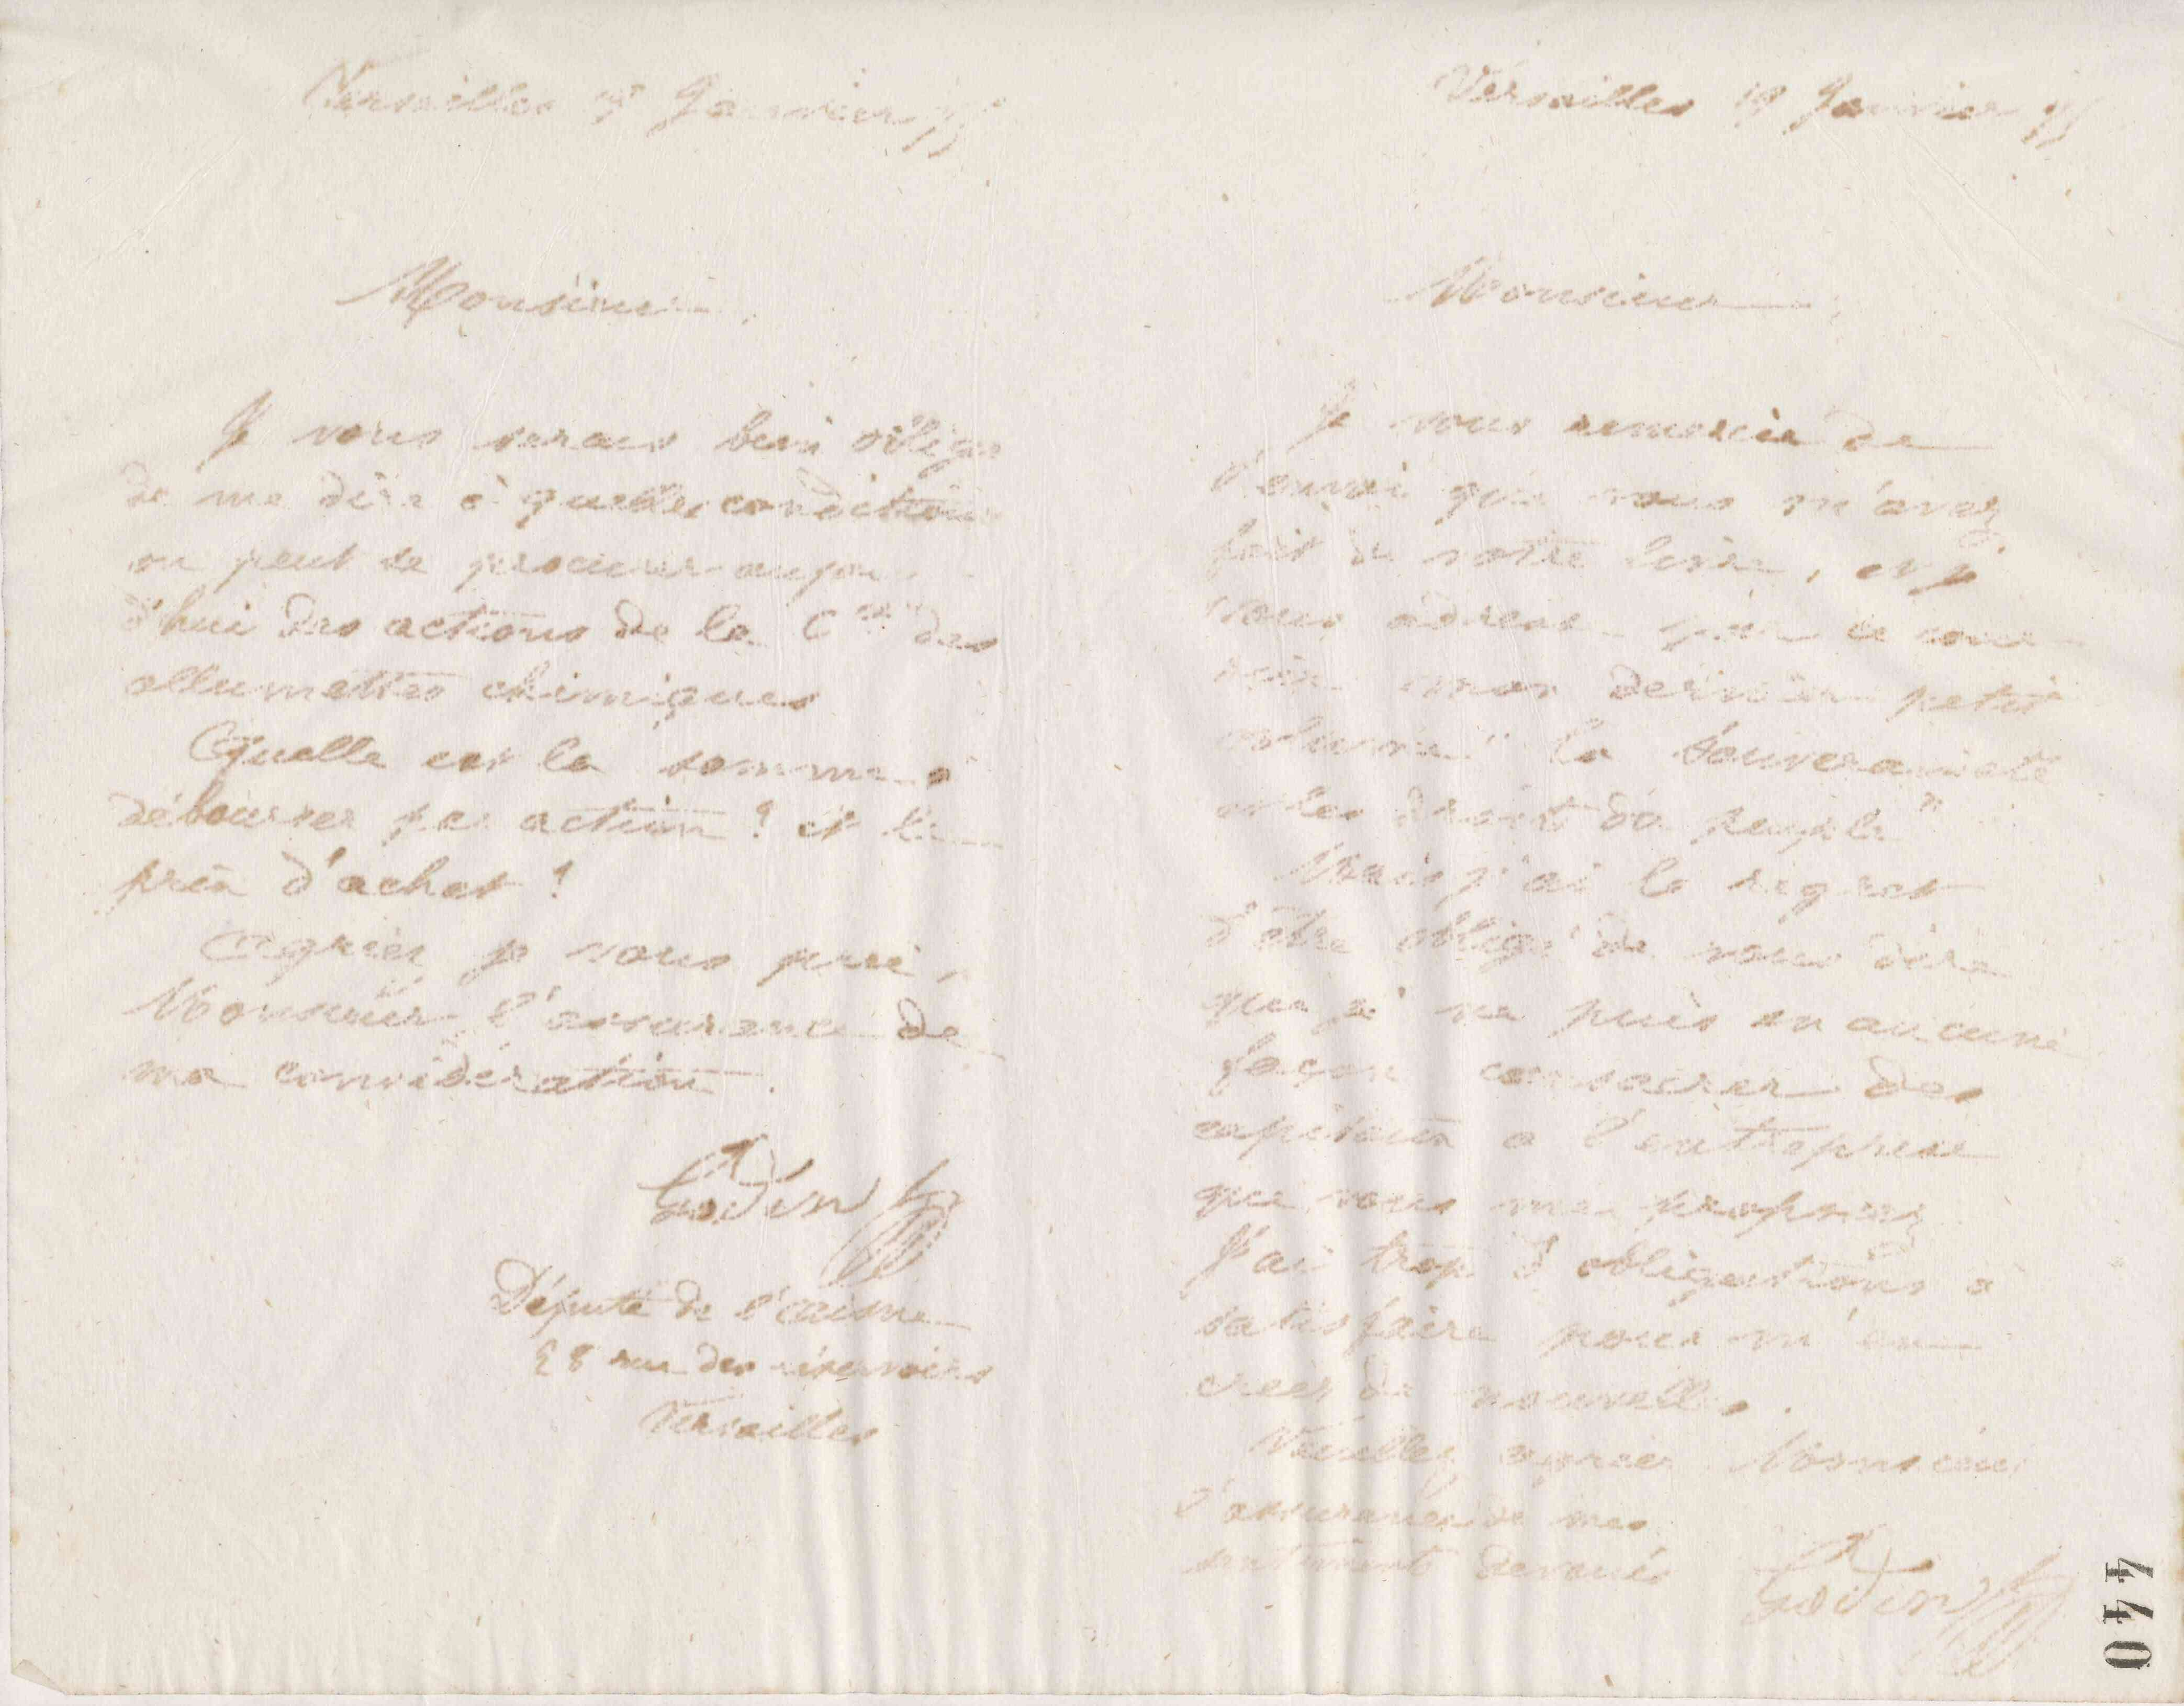 Versailles 19 Janvier 75
Monsieur,
Je vous serais bien obligé
de me dire à quelles conditions
on peut se procurer aujour
d'hui des actions de la Cie des
allumettes chimiques
Quelle est la somme à
débourser par action ? et le
prix d'achat ?
Agréez je vous prie,
Monsieur l'assurance de
ma considération.
Godin
Député de l'Aisne
28 rue des réservoirs
Versailles
Versailles 19 Janvier 75
Monsieur,
Je vous remercie de
l'envoi que vous m'avez
fait de votre livre, et je
vous adresse par ce cour
rier mon dernier petit
volume "la Souveraineté
et les droits du peuple"
Mais j'ai le regret
d'être obligé de vous dire
que je ne puis en aucune
façon consacrer des
capitaux a l'entreprise
que vous me proposez
J'ai trop d'obligations à
satisfaire pour m'en
créer de nouvelles.
Veuillez agréer Monsieur
l'assurance de mes
sentiments dévoués
Godin
044